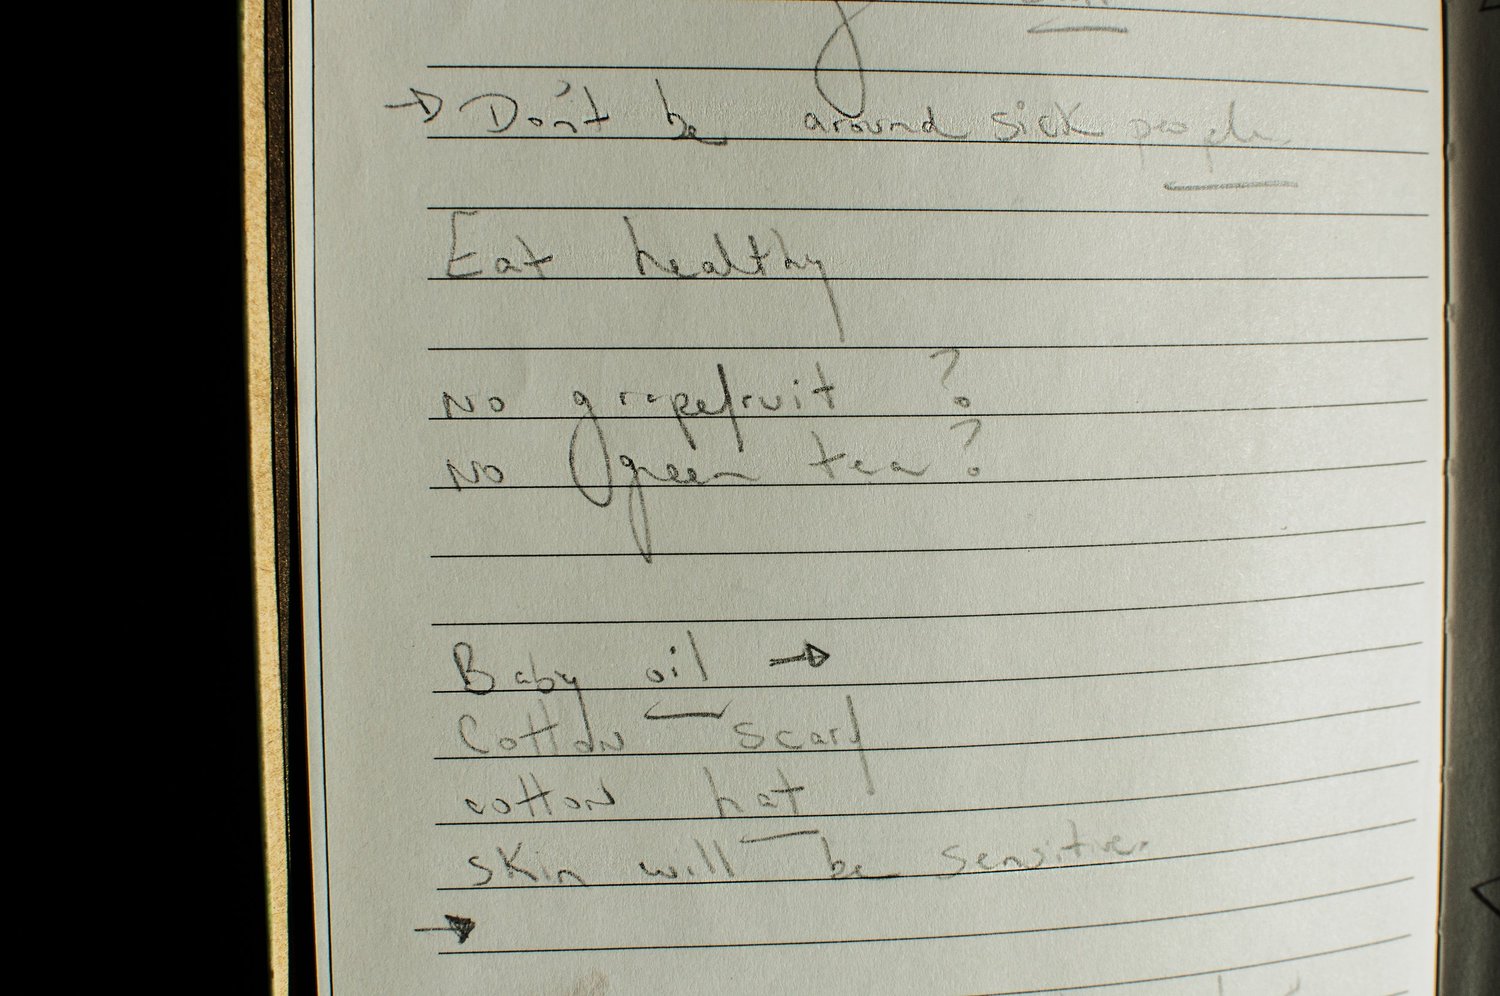 → Don't be around sick people
Eat healthy
No grapefruit ?
No green tea ?
Baby oil →
Cotton scarf
cotton hat
skin will be sensitive.
→